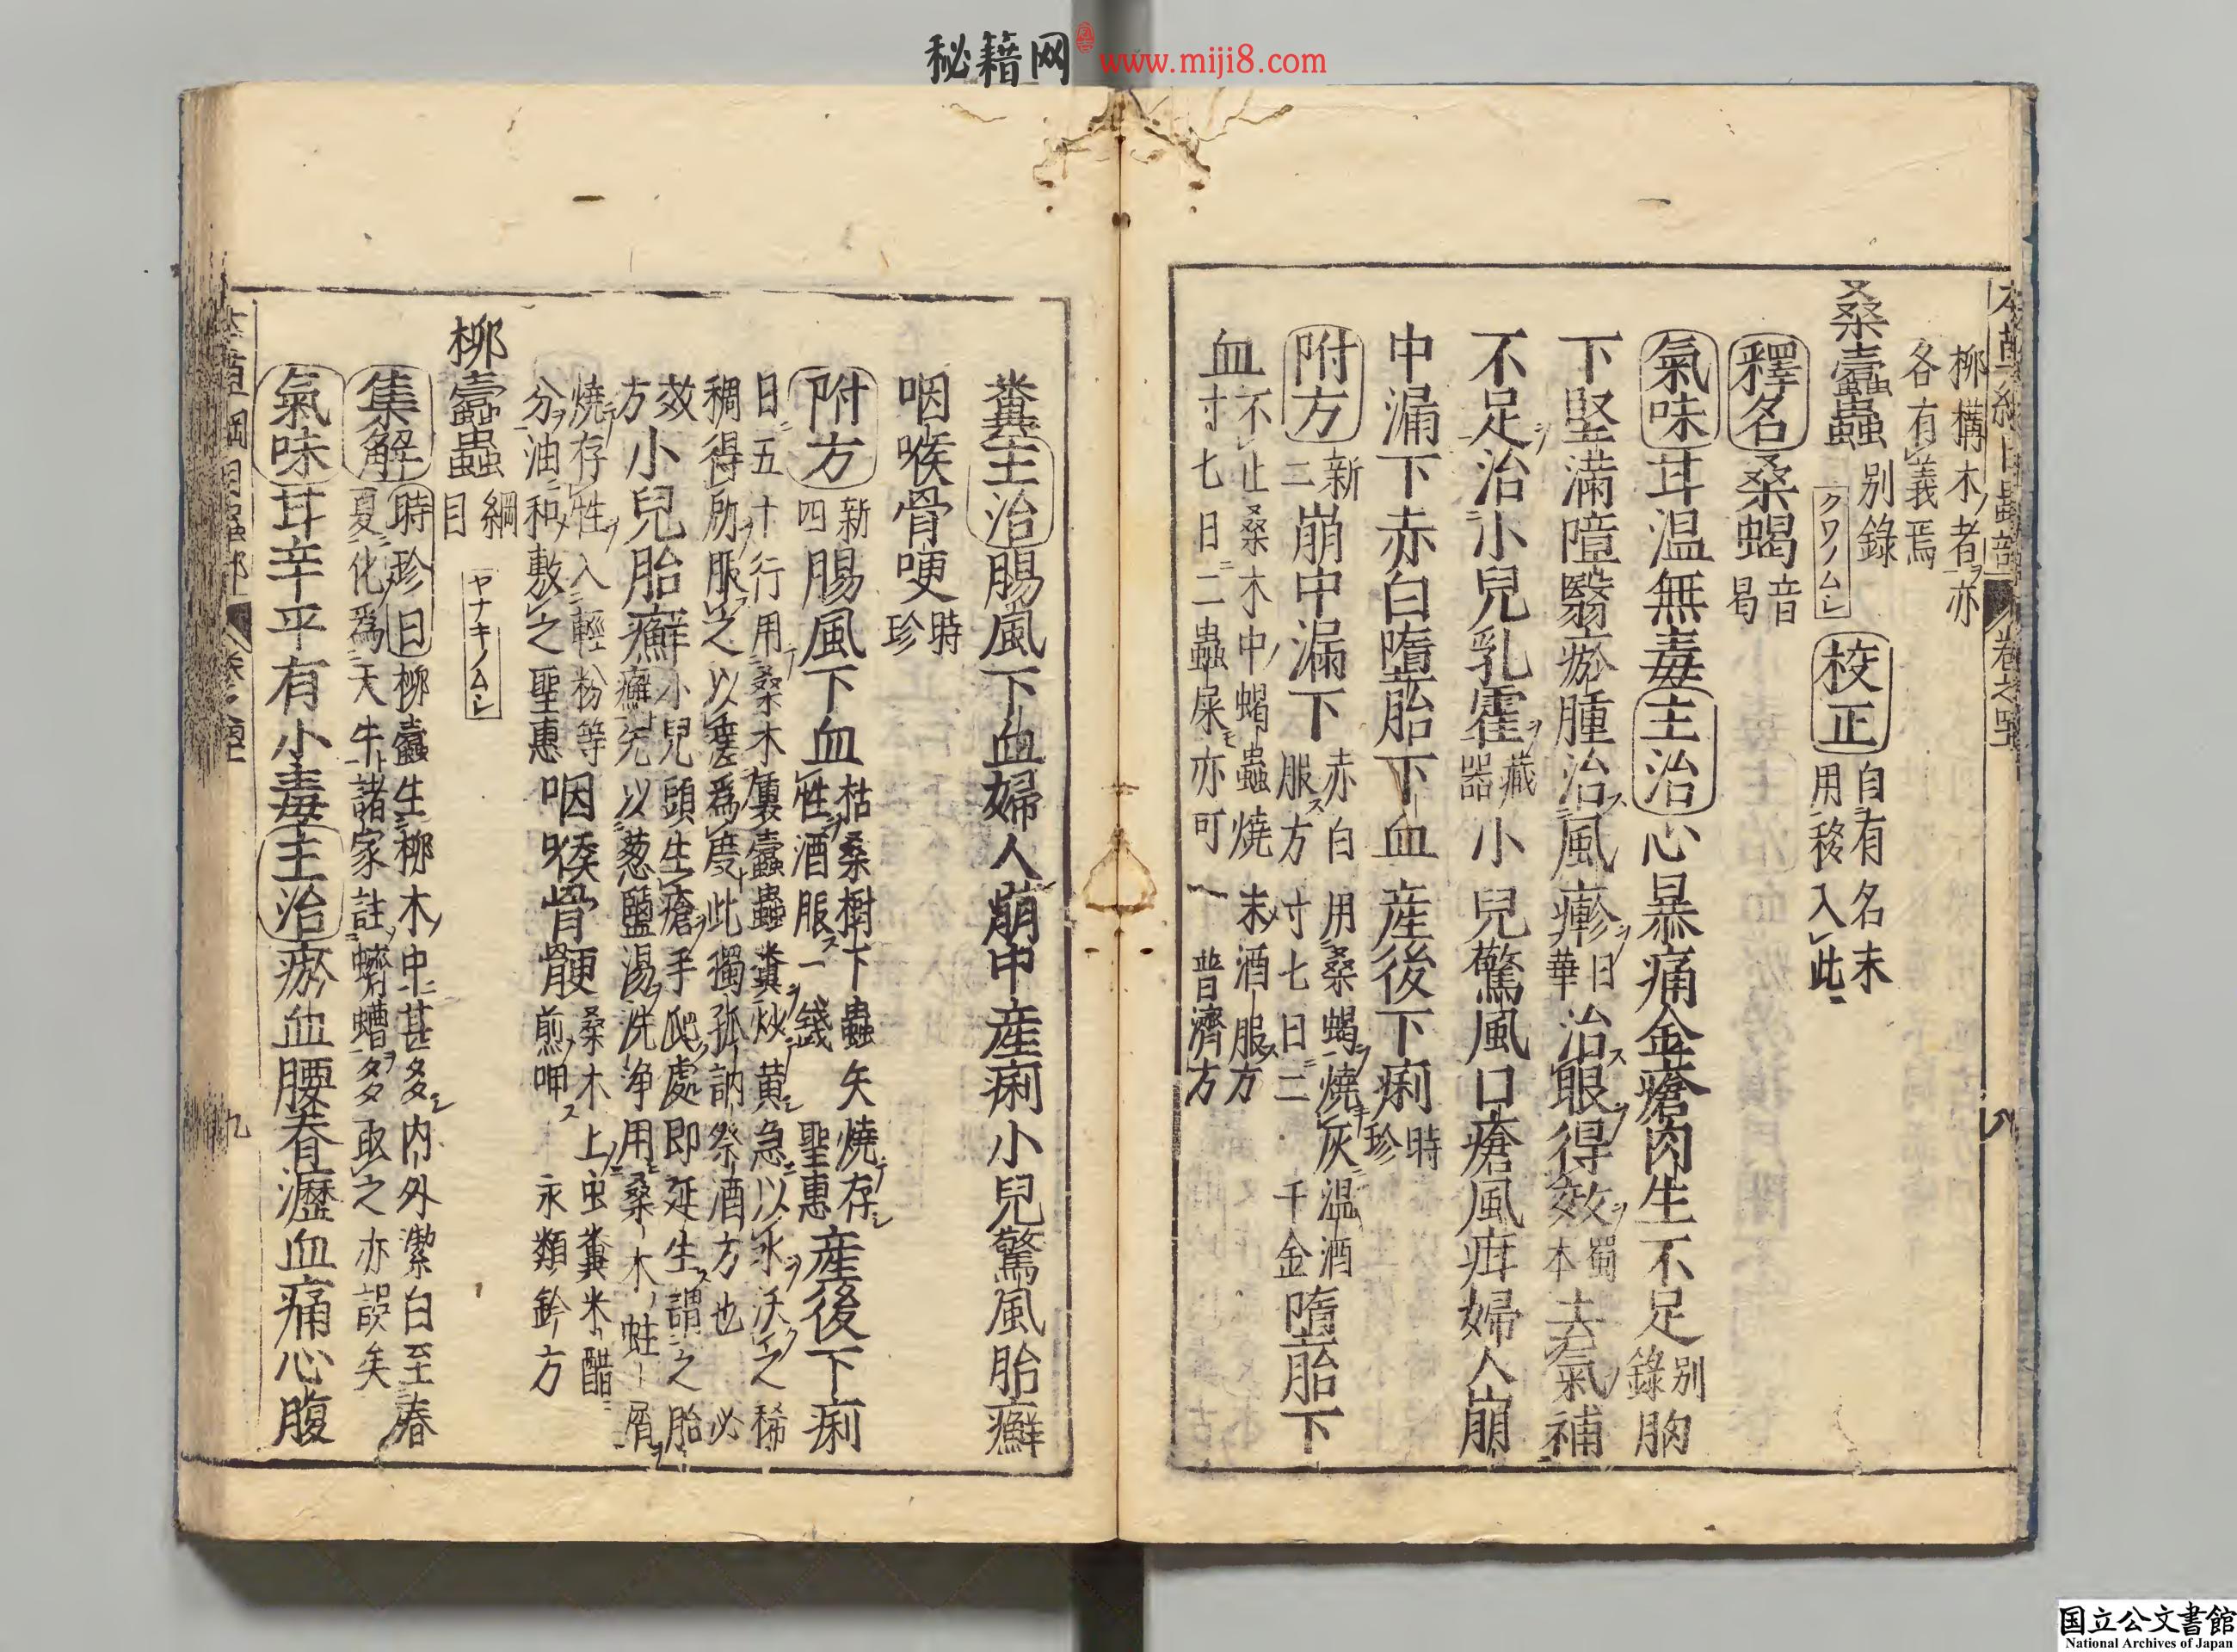 秘籍网 www.miji8.com
柳構木ノ者ヲ亦
各有義焉
桑蠹蟲 别錄 クワノムシ 校正 自有名未用移入此
釋名 桑蝎 音曷
氣味 苷温無毒 主治 心暴痛金瘡肉生不足 别錄 胸
下堅滿障翳瘀腫治風𤺋 日華 治眼得效 蜀本 去氣補
不足治小兒乳霍 藏器 小兒驚風口瘡風疳婦人崩
中漏下赤白墮胎下血產後下痢 時珍
附方 新二 崩中漏下 赤白用桑蝎燒灰温酒服方寸七日二 千金 墮胎下
血 不止桑木中蝎蟲燒末酒服方寸七日二蟲屎亦可 普濟方
糞 主治 腸風下血婦人崩中產痢小兒驚風胎癬
咽喉骨哽 時珍
附方 新四 腸風下血 枯桑樹下蟲矢燒存性酒服一錢 聖惠 產後下痢
日五十行用桑木裏蠹蟲糞炒黃急以水沃之稀
稠得所服之以瘥爲度此獨孤訥祭酒方也 必
效方 小兒胎癬 小兒頭生瘡手爬處即延生謂之胎癬先以葱鹽湯洗淨用桑木蛀屑
燒存性入輕粉等
分油和敷之 聖惠 咽喉骨鯁 桑木上虫糞米醋煎呷 永類鈐方
柳蠹蟲 綱目 ヤナキノムシ
集解 時珍曰 柳蠹生柳木中甚多内外潔白至春
夏化爲天牛諸家註蠐螬多取之亦誤矣
氣味 苷辛平有小毒 主治 瘀血腰脊瀝血痛心腹
九
国立公文書館
National Archives of Japan